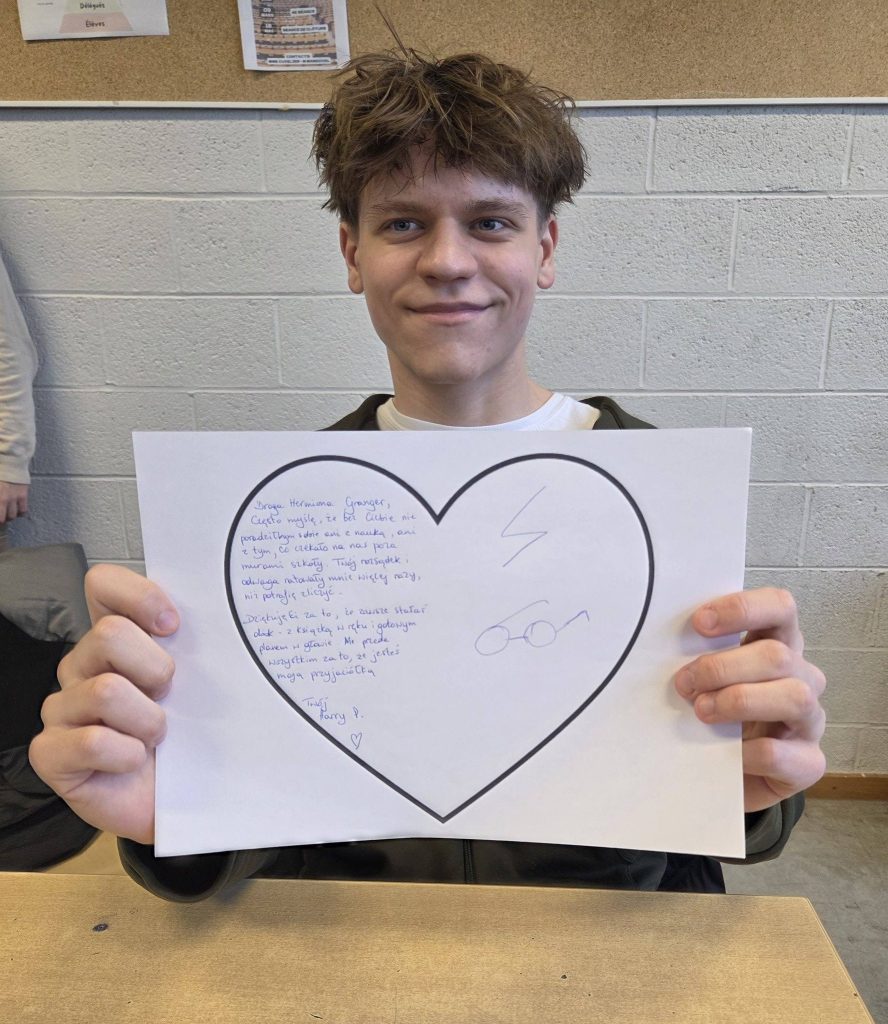 Délégués
Élèves
SÉANCE DE CLÔTURE
CONTACTS
Droga Hermiona Granger,
Często myślę, że bez Ciebie nie
poradziłbym sobie ani z nauką, ani
z tym, co czekało na nas poza
murami szkoły. Twój rozsądek i
odwaga ratowały mnie więcej razy,
niż potrafię zliczyć.
Dziękuję Ci za to, że zawsze stałaś
obok - z książką w ręku i gotowym
planem w głowie. Ale przede
wszystkim za to, że jesteś
moją przyjaciółką
Twój
Harry P.